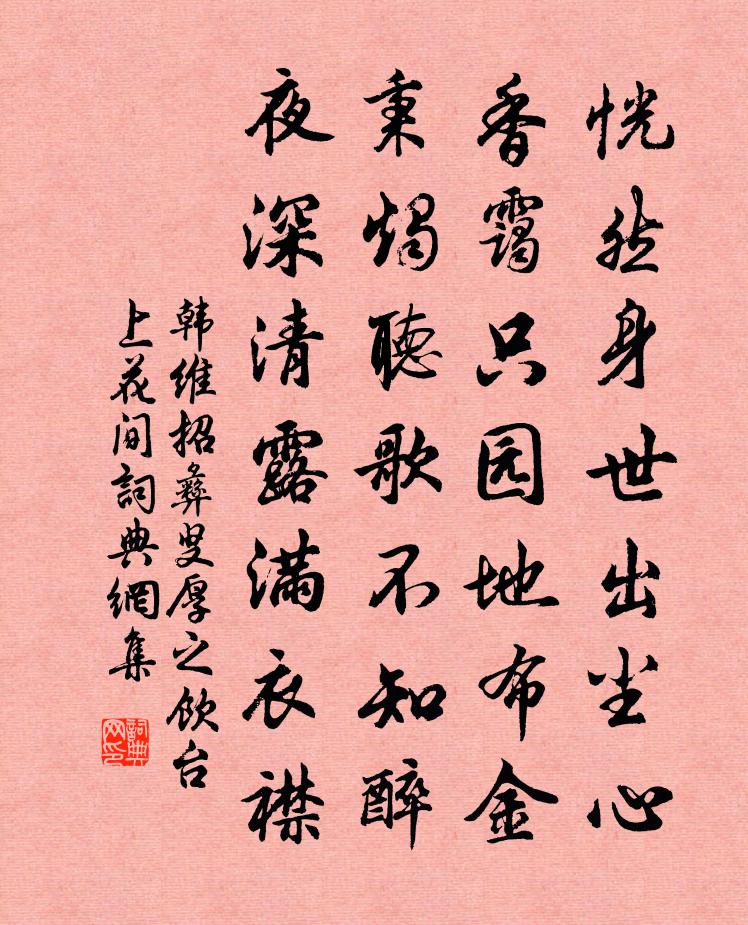 恍然身世出尘心
香霭只园地布金
秉烛聽歌不知醉
夜深清露满衣襟
韩维招彝叟厚之饮台
上花间詞典網集
詞典网印